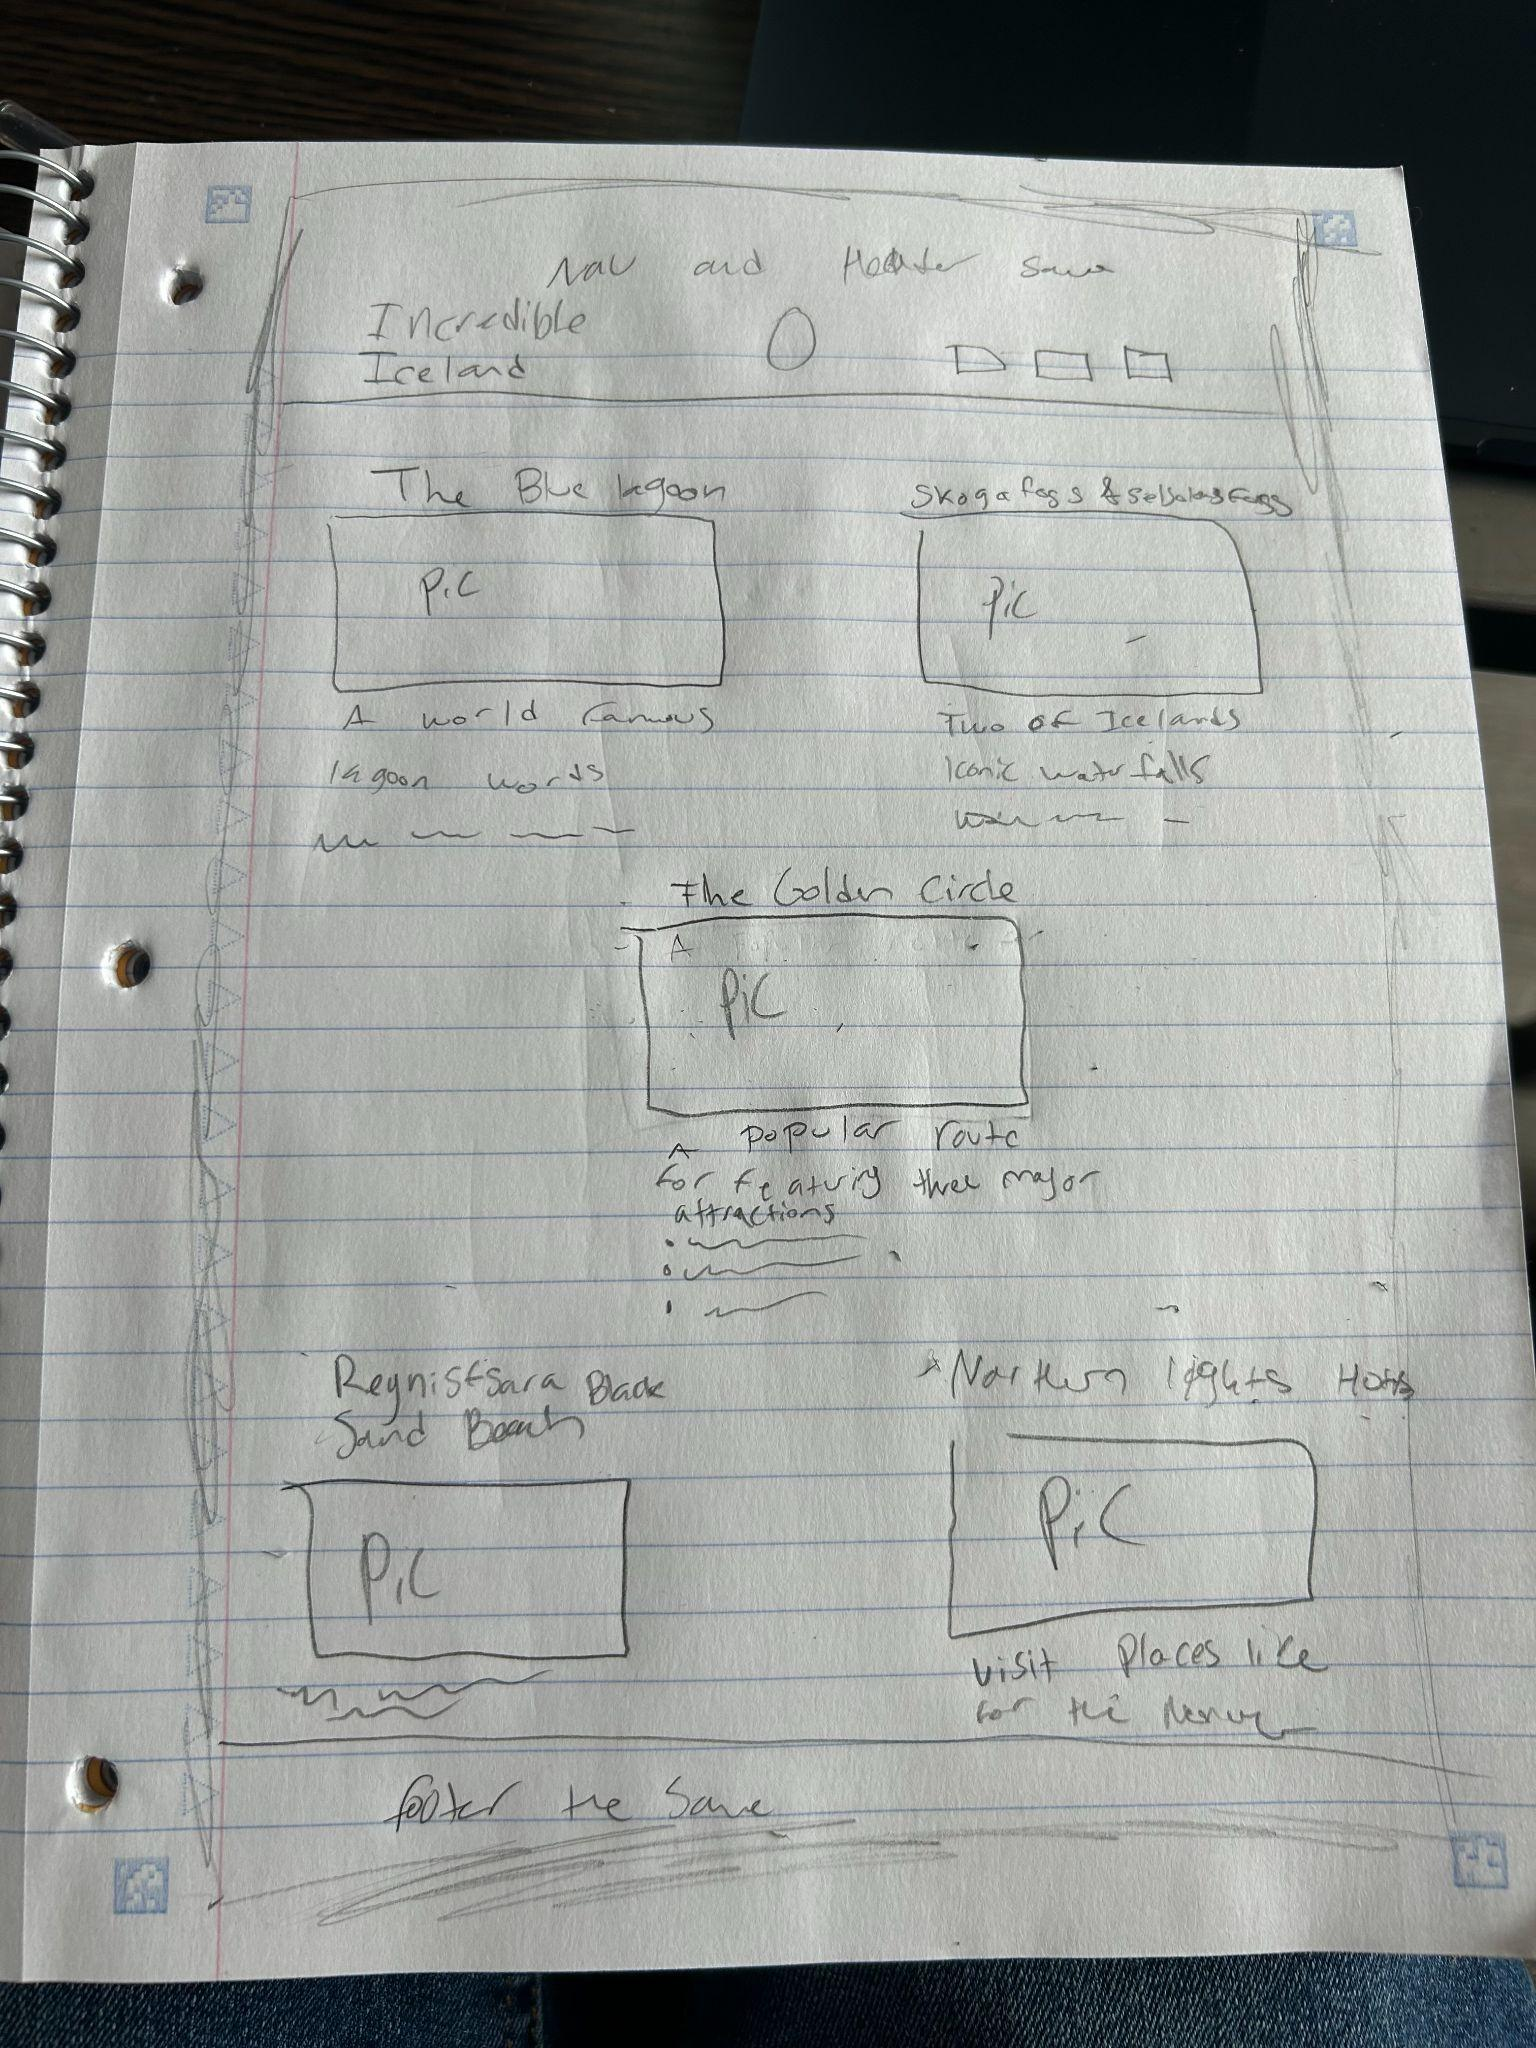 Nav and Header same
Incredible
Iceland
The Blue lagoon
Skogafoss &
Pic
Pic
A world famous
lagoon words
Two of Icelands
Iconic waterfalls
The Golden Circle
A
Pic
A popular route
for featuring three major
attractions
Reynisfsara Black
Sand Beach
Northern lights
Pic
Pic
visit places like
for the
footer the same